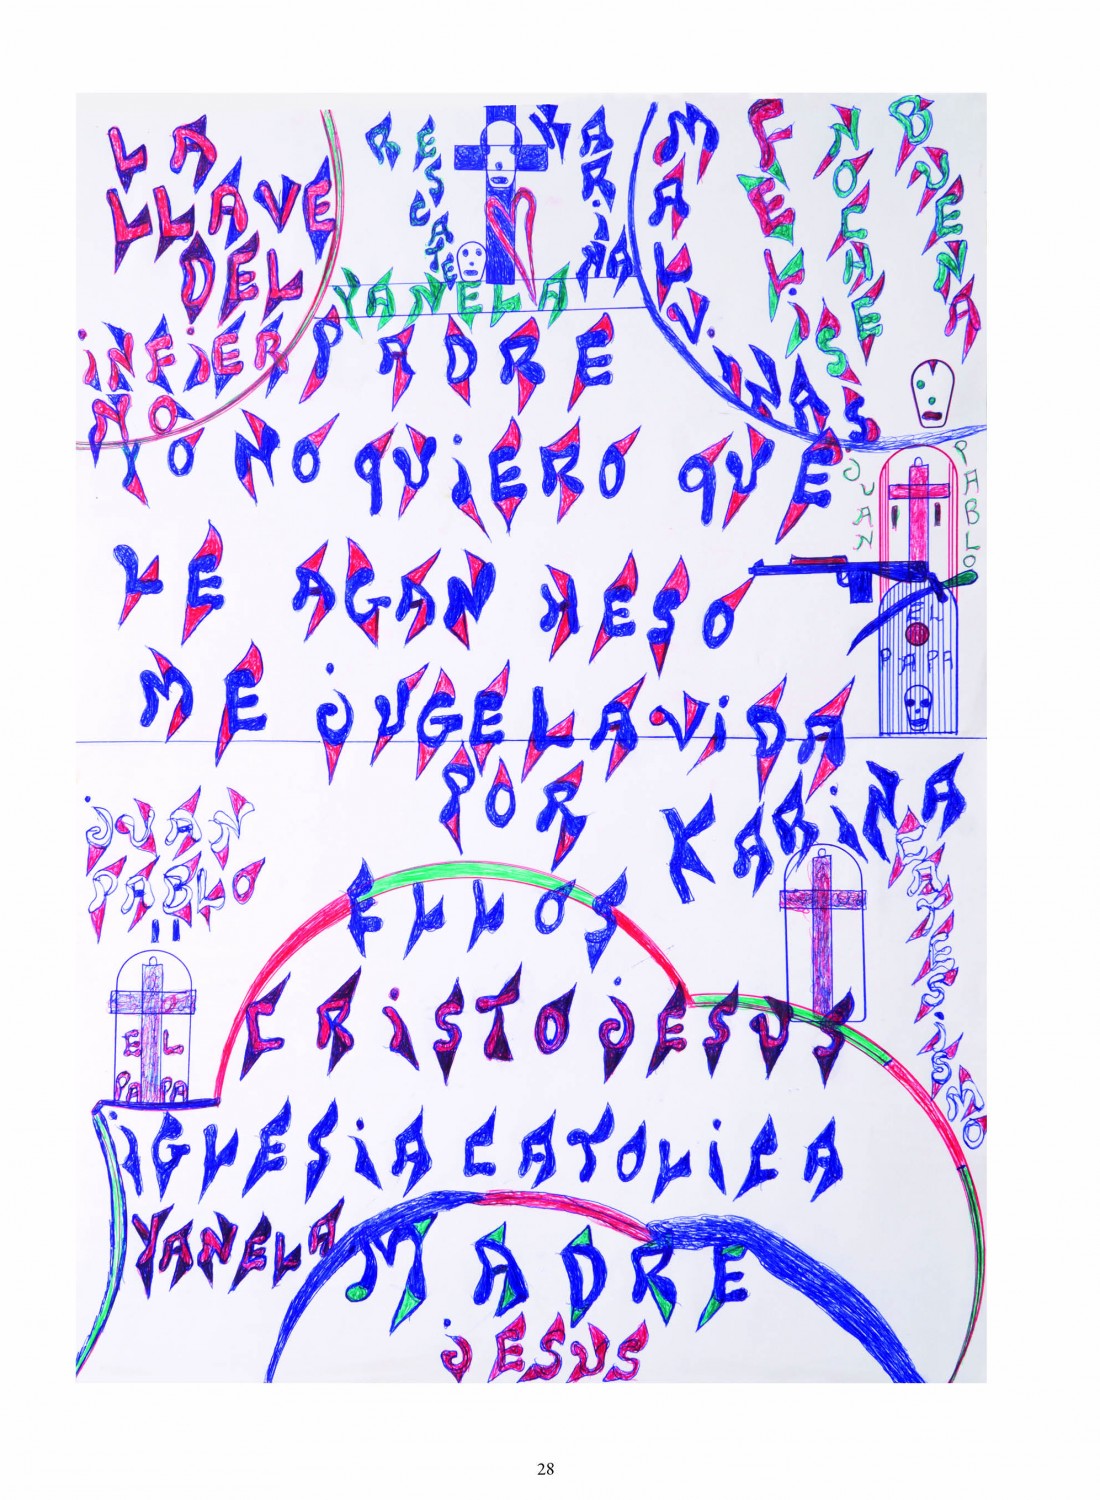 LA
LLAVE
DEL
iNFiER
NO
RESCATE
KARiNA
YANELA
MALViNAS
FELiS
NOCHE
BUENA
PADRE
YO NO QUiERO QUE
LE AGAN HESO
JUAN
PABLO
EL
PAPA
ME JUGE LA ViDA
POR
KARiNA
JUAN
PABLO
II
EL
PAPA
CATESiSMO
ELLOS
CRiSTO JESUS
iGLESiA CATOLiCA
YANELA
MADRE
JESUS
28